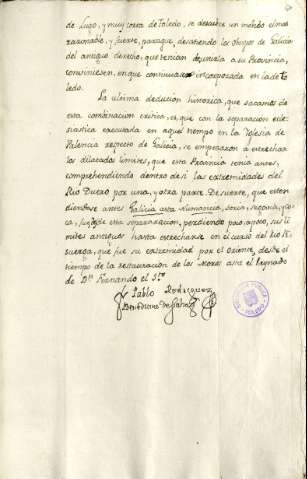 de Lugo, y muy cerca de Toledo, se descubre un medio el mas
razonable, y fuerte, para que, desatendido los Obispos de Galicia
del antiguo derecho, que tenian a su Provincia,
conviniesen, en que continuara incorporada en la de to
ledo.
La ultima deducion historica, que sacamos de
esta combinacion critica, es, que con la separacion ecle-
siastica executada en aquel tiempo en la Iglesia de
Palencia respecto de Galicia, se empezaron a estrechar
los dilatados limites, que esta Provincia tenia antes,
comprehendiendo dentro de si las extremidades del
Rio Duero por una, y otra parte. De suerte, que esten
diendose antes Galicia asta Numancia, Soria, Segovia,
desde esta separacion, perdiendo poco a poco, sus li
mites antiguos hasta estrecharse en el curso del rio Pi
suerga, que fue su extremidad por el Oriente, desde el
tiempo de la restauracion de los Moros asta el Reynado
de Dn. Fernando el 1º.
Pablo Rodriguez